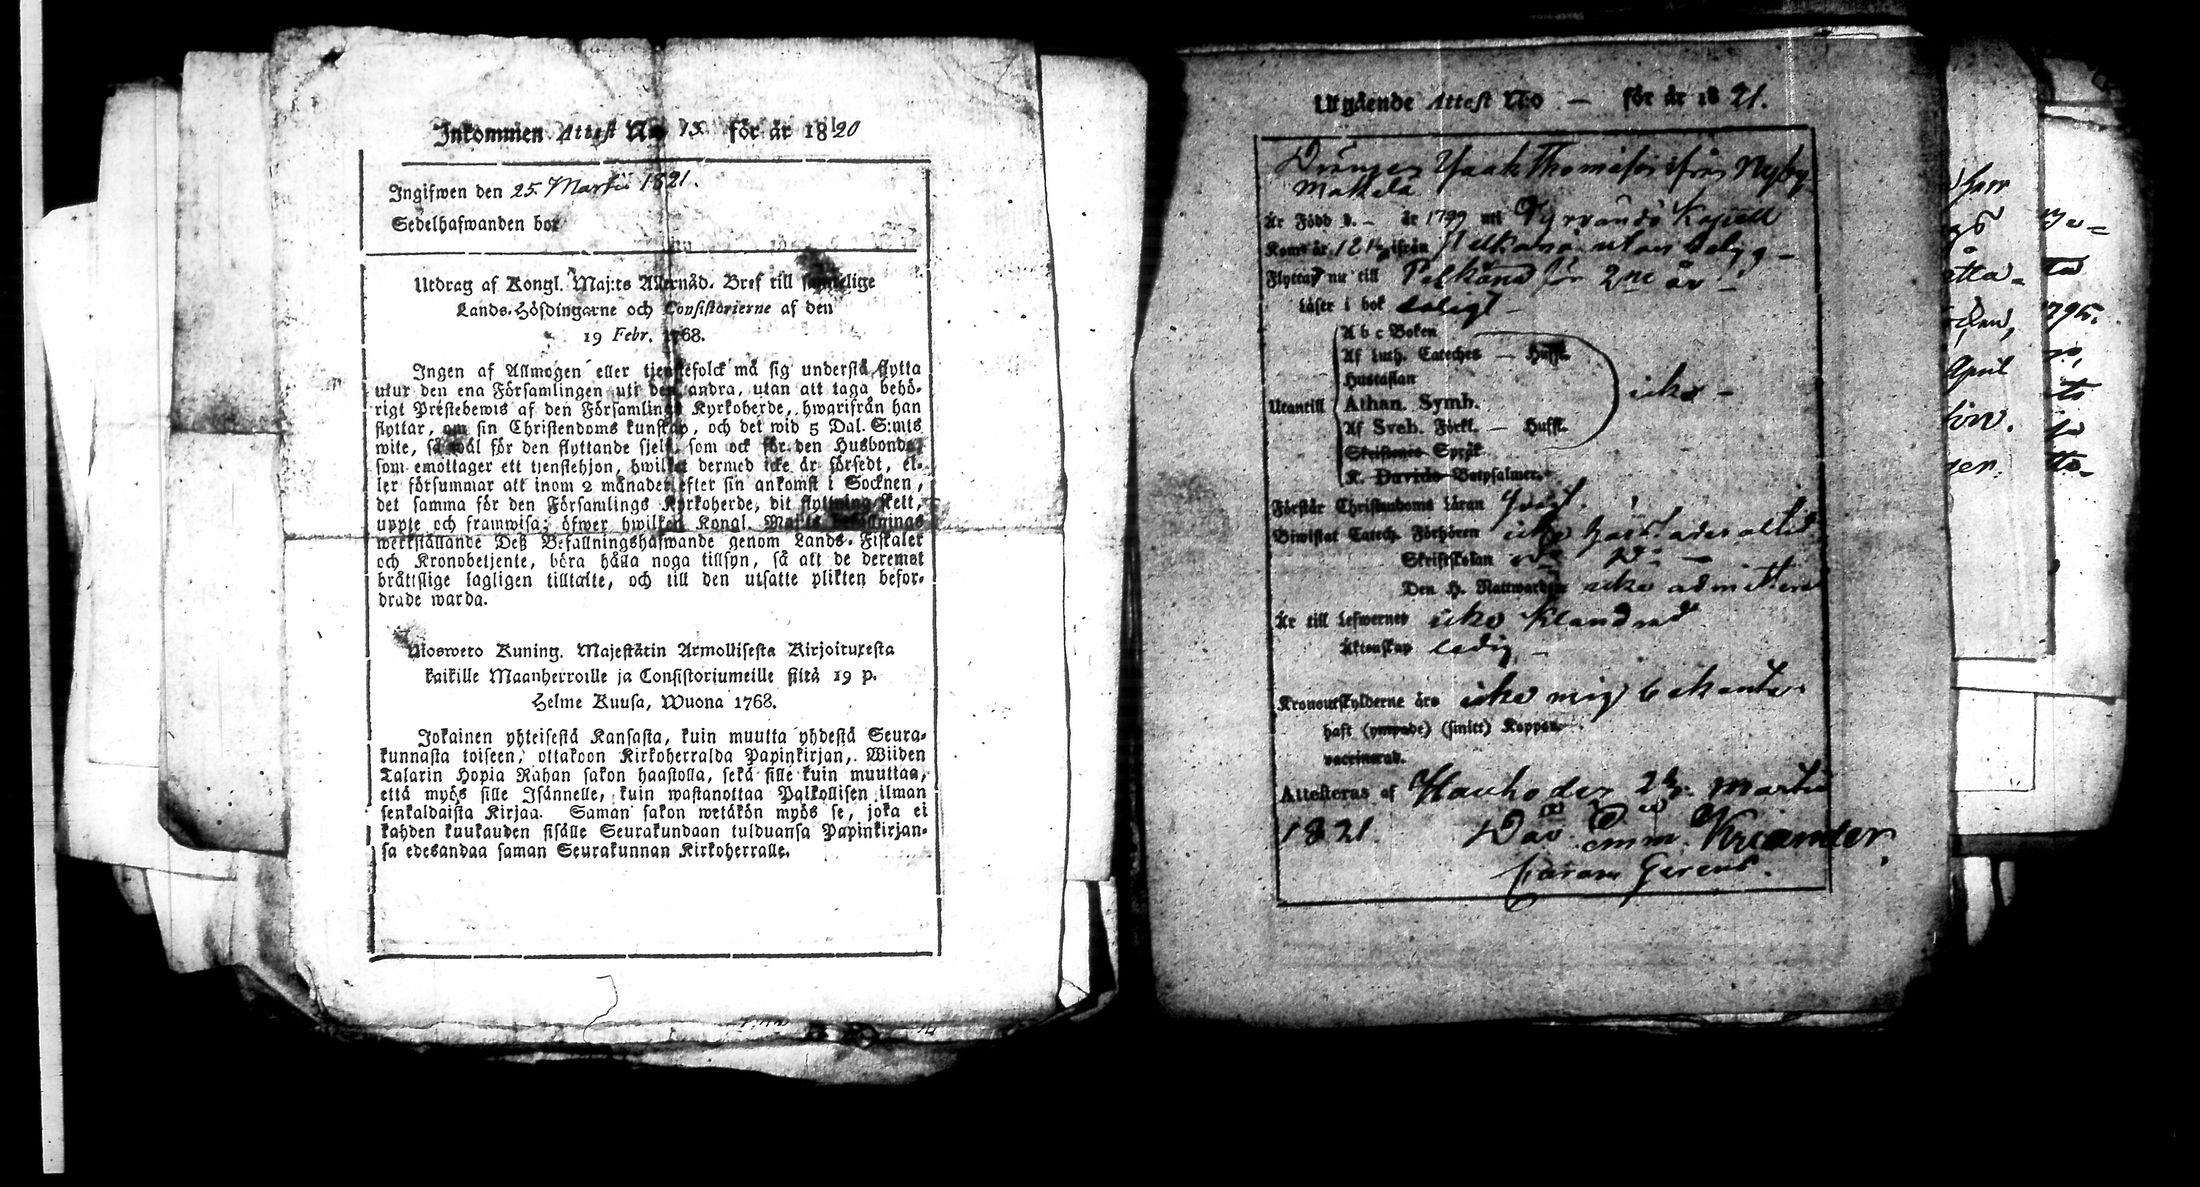 Inkommen Attest No 15. för år 1820
Ingifwen den 25. Martii 1821.
Sedelhafwanden bor
Utdrag af Kongl. Maj:ts Allernåd. Bref till samtelige
Lands-Höfdingarne och Consistorierne af den
19 Febr. 1768.
Ingen af Allmogen eller tjenstefolck må sig understå flytta
utur den ena Församlingen uti den andra, utan att taga behö-
rigt Prestebewis af den Församlings Kyrkoherde, hwarifrån han
flyttar, om sin Christendoms kunskap, och det wid 5 Dal. S:mts
wite, så wäl för den flyttande sielf, som ock för den Husbonde,
som emottager ett tjenstehjon, hwilket dermed icke är försedt, el-
ler försummar att inom 2 månader efter sin ankomst i Socknen,
det samma för den Församlings Kyrkoherde, dit flyttning skett,
uppte och framwisa; öfwer hwilken Kongl. Maj:ts Befallnings
werkställande Deß Befallningshafwande genom Lands-Fiskaler
och Kronobetjente, böra hålla noga tillsyn, så att de deremot
bråttslige lagligen tilltalte, och till den utsatte plikten befor-
drade warda.
Ulosweto Kuning. Majestätin Armollisesta Kirjoituxesta
kaikille Maanherroille ja Consistoriumeille siitä 19 p.
Helme Kuusa, Wuona 1768.
Jokainen yhteisestä Kansasta, kuin muutta yhdestä Seura-
kunnasta toiseen, ottakoon Kirkoherralda Papinkirjan, Wiiden
Talarin Hopia Rahan sakon haastolla, sekä sille kuin muuttaa,
että myös sille Isännelle, kuin wastanottaa Palkollisen ilman
senkaldaista Kirjaa. Saman sakon wetäkön myös se, joka ei
kahden kuukauden sisälle Seurakundaan tulduansa Papinkirjan-
sa edesandaa saman Seurakunnan Kirkoherralle.
Utgående Attest N:o — för år 1821.
Drängen Isaak Thomasson ifrån Nyby
Makela
Är Född d. — år 1799 uti Tyrvändö Kapell
Kom år ifrån utan betyg —
Flyttar nu till Pelkäne för 2ne år —
Läser i bok
A b c Boken
Af Luth. Cateches — Husst.
Hustaflan
Utantill Athan. Symb. icke —
Af Sveb. Förkl. — Husst.
Skriftenes Språk
K. Davids Botpsalmer.
Förstår Christendoms Läran
Biwistat Catech. Förhören icke
Skriftskolan
Den H. Nattwarden icke admitterad
Är till Lefwernet icke klandrad
Äktenskap ledig —
Kronoutskylderne äro icke mig bekanta
haft (ympade) (smitt) Koppor
vaccinerad.
Attesteras af Hauho den Martii
1821. Dav. Em. Kriander